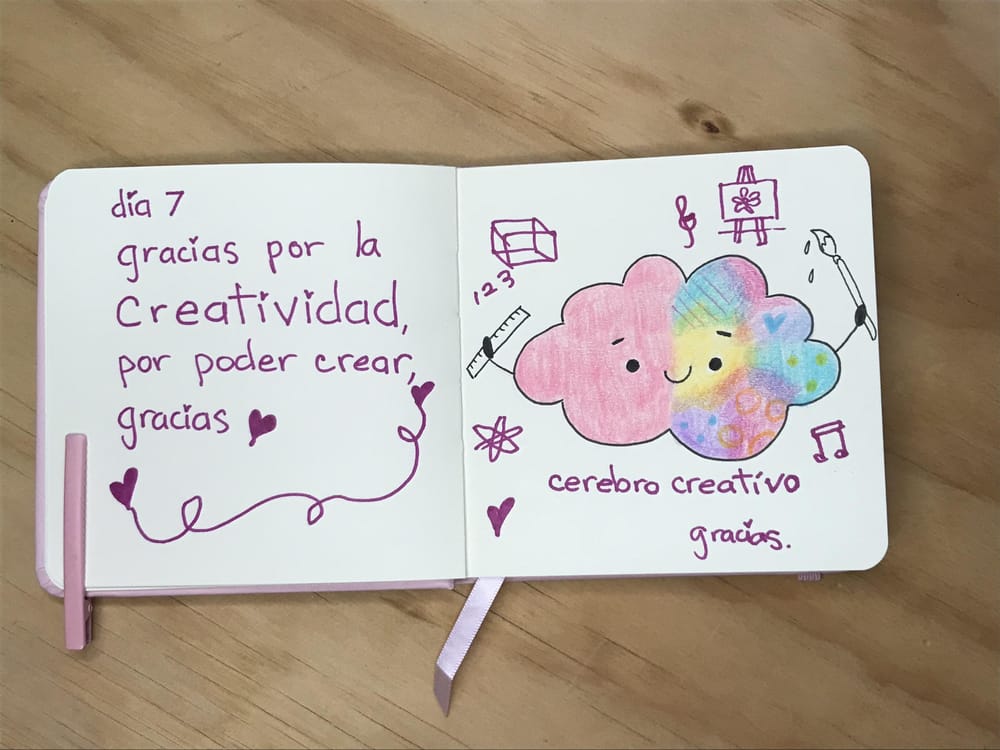 día 7
gracias por la
Creatividad,
por poder crear,
gracias
1 2 3
cerebro creativo
gracias.